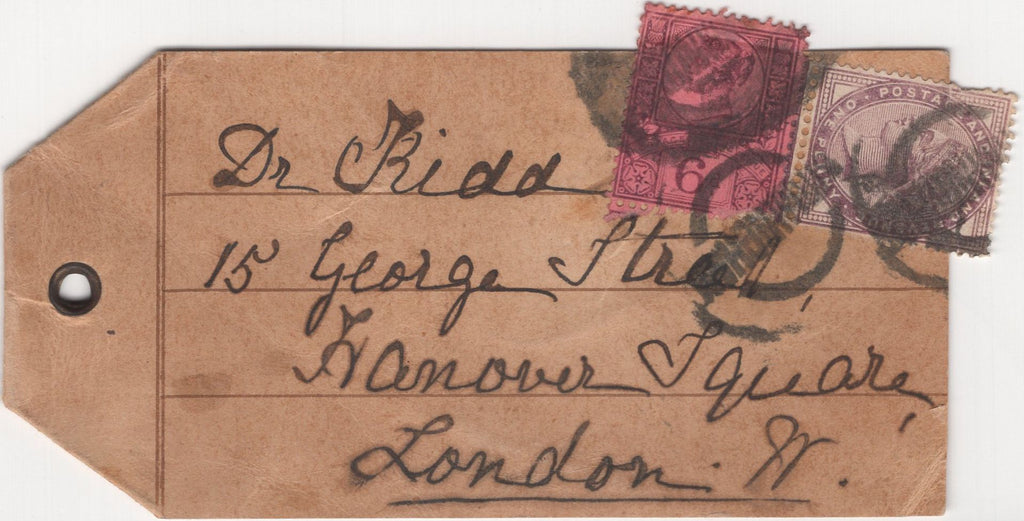 Dr Kidd
15 George Street,
Hanover Square,
London. W.
6
POSTAGE AND INLAND
ONE PENNY